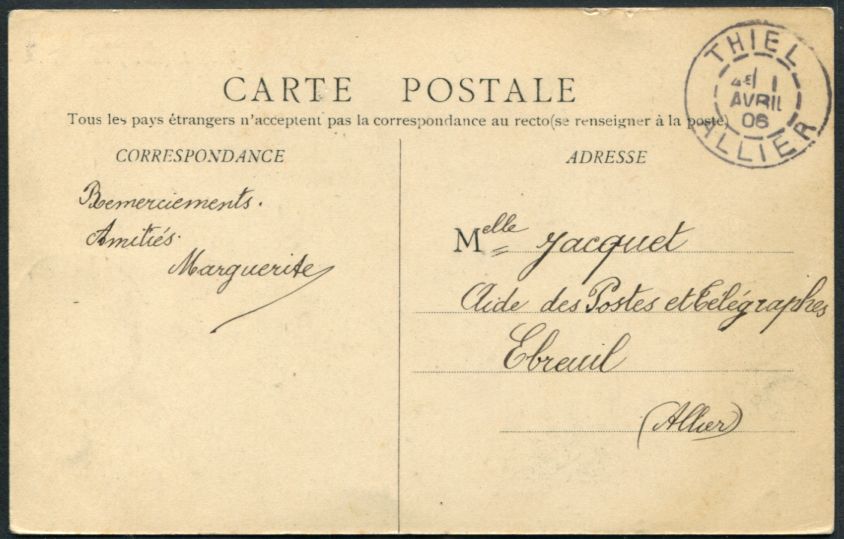 CARTE POSTALE
Tous les pays étrangers n'acceptent pas la correspondance au recto (se renseigner à la poste)
THIEL
1
AVRIL
06
ALLIER
CORRESPONDANCE
Remerciements.
Amitiés.
Marguerite
ADRESSE
Melle Jacquet
Aide des Postes et Télégraphes
Ebreuil
(Allier)